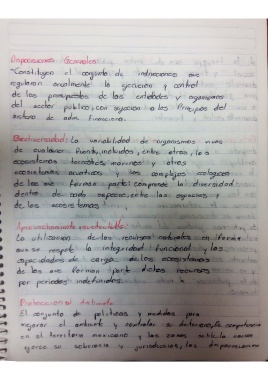 Disposiciones Generales:
"Constituyen el conjunto de indicaciones que
regularan anualmente la ejecución y control
de los presupuestos de las entidades y organismos
del sector público, con sujeción a los Principios del
sistema de adm. financiera.
Biodiversidad: La variabilidad de organismos vivos
de cualquier fuente, incluidos, entre otros, los
ecosistemas terrestres, marinos y otros
ecosistemas acuáticos y los complejos ecológicos
de los que forman parte; comprende la diversidad
dentro de cada especie, entre las especies y
de los ecosistemas.
Aprovechamiento sustentable:
La utilización de los recursos naturales en forma
que se respete la integridad funcional y las
capacidades de carga de los ecosistemas
de los que forman parte dichos recursos
por periodos indefinidos.
Protección al Ambiente
El conjunto de políticas y medidas para
mejorar el ambiente y controlar su deterioro,
en el territorio mexicano y las zonas
ejerce su soberanía y jurisdicción, las disposiciones